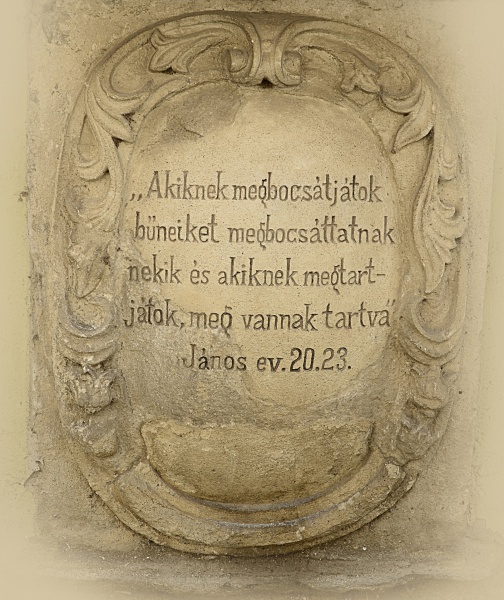 „Akiknek megbocsátjátok
büneiket megbocsáttatnak
nekik és akiknek megtart-
játok, meg vannak tartva”
János ev. 20.23.